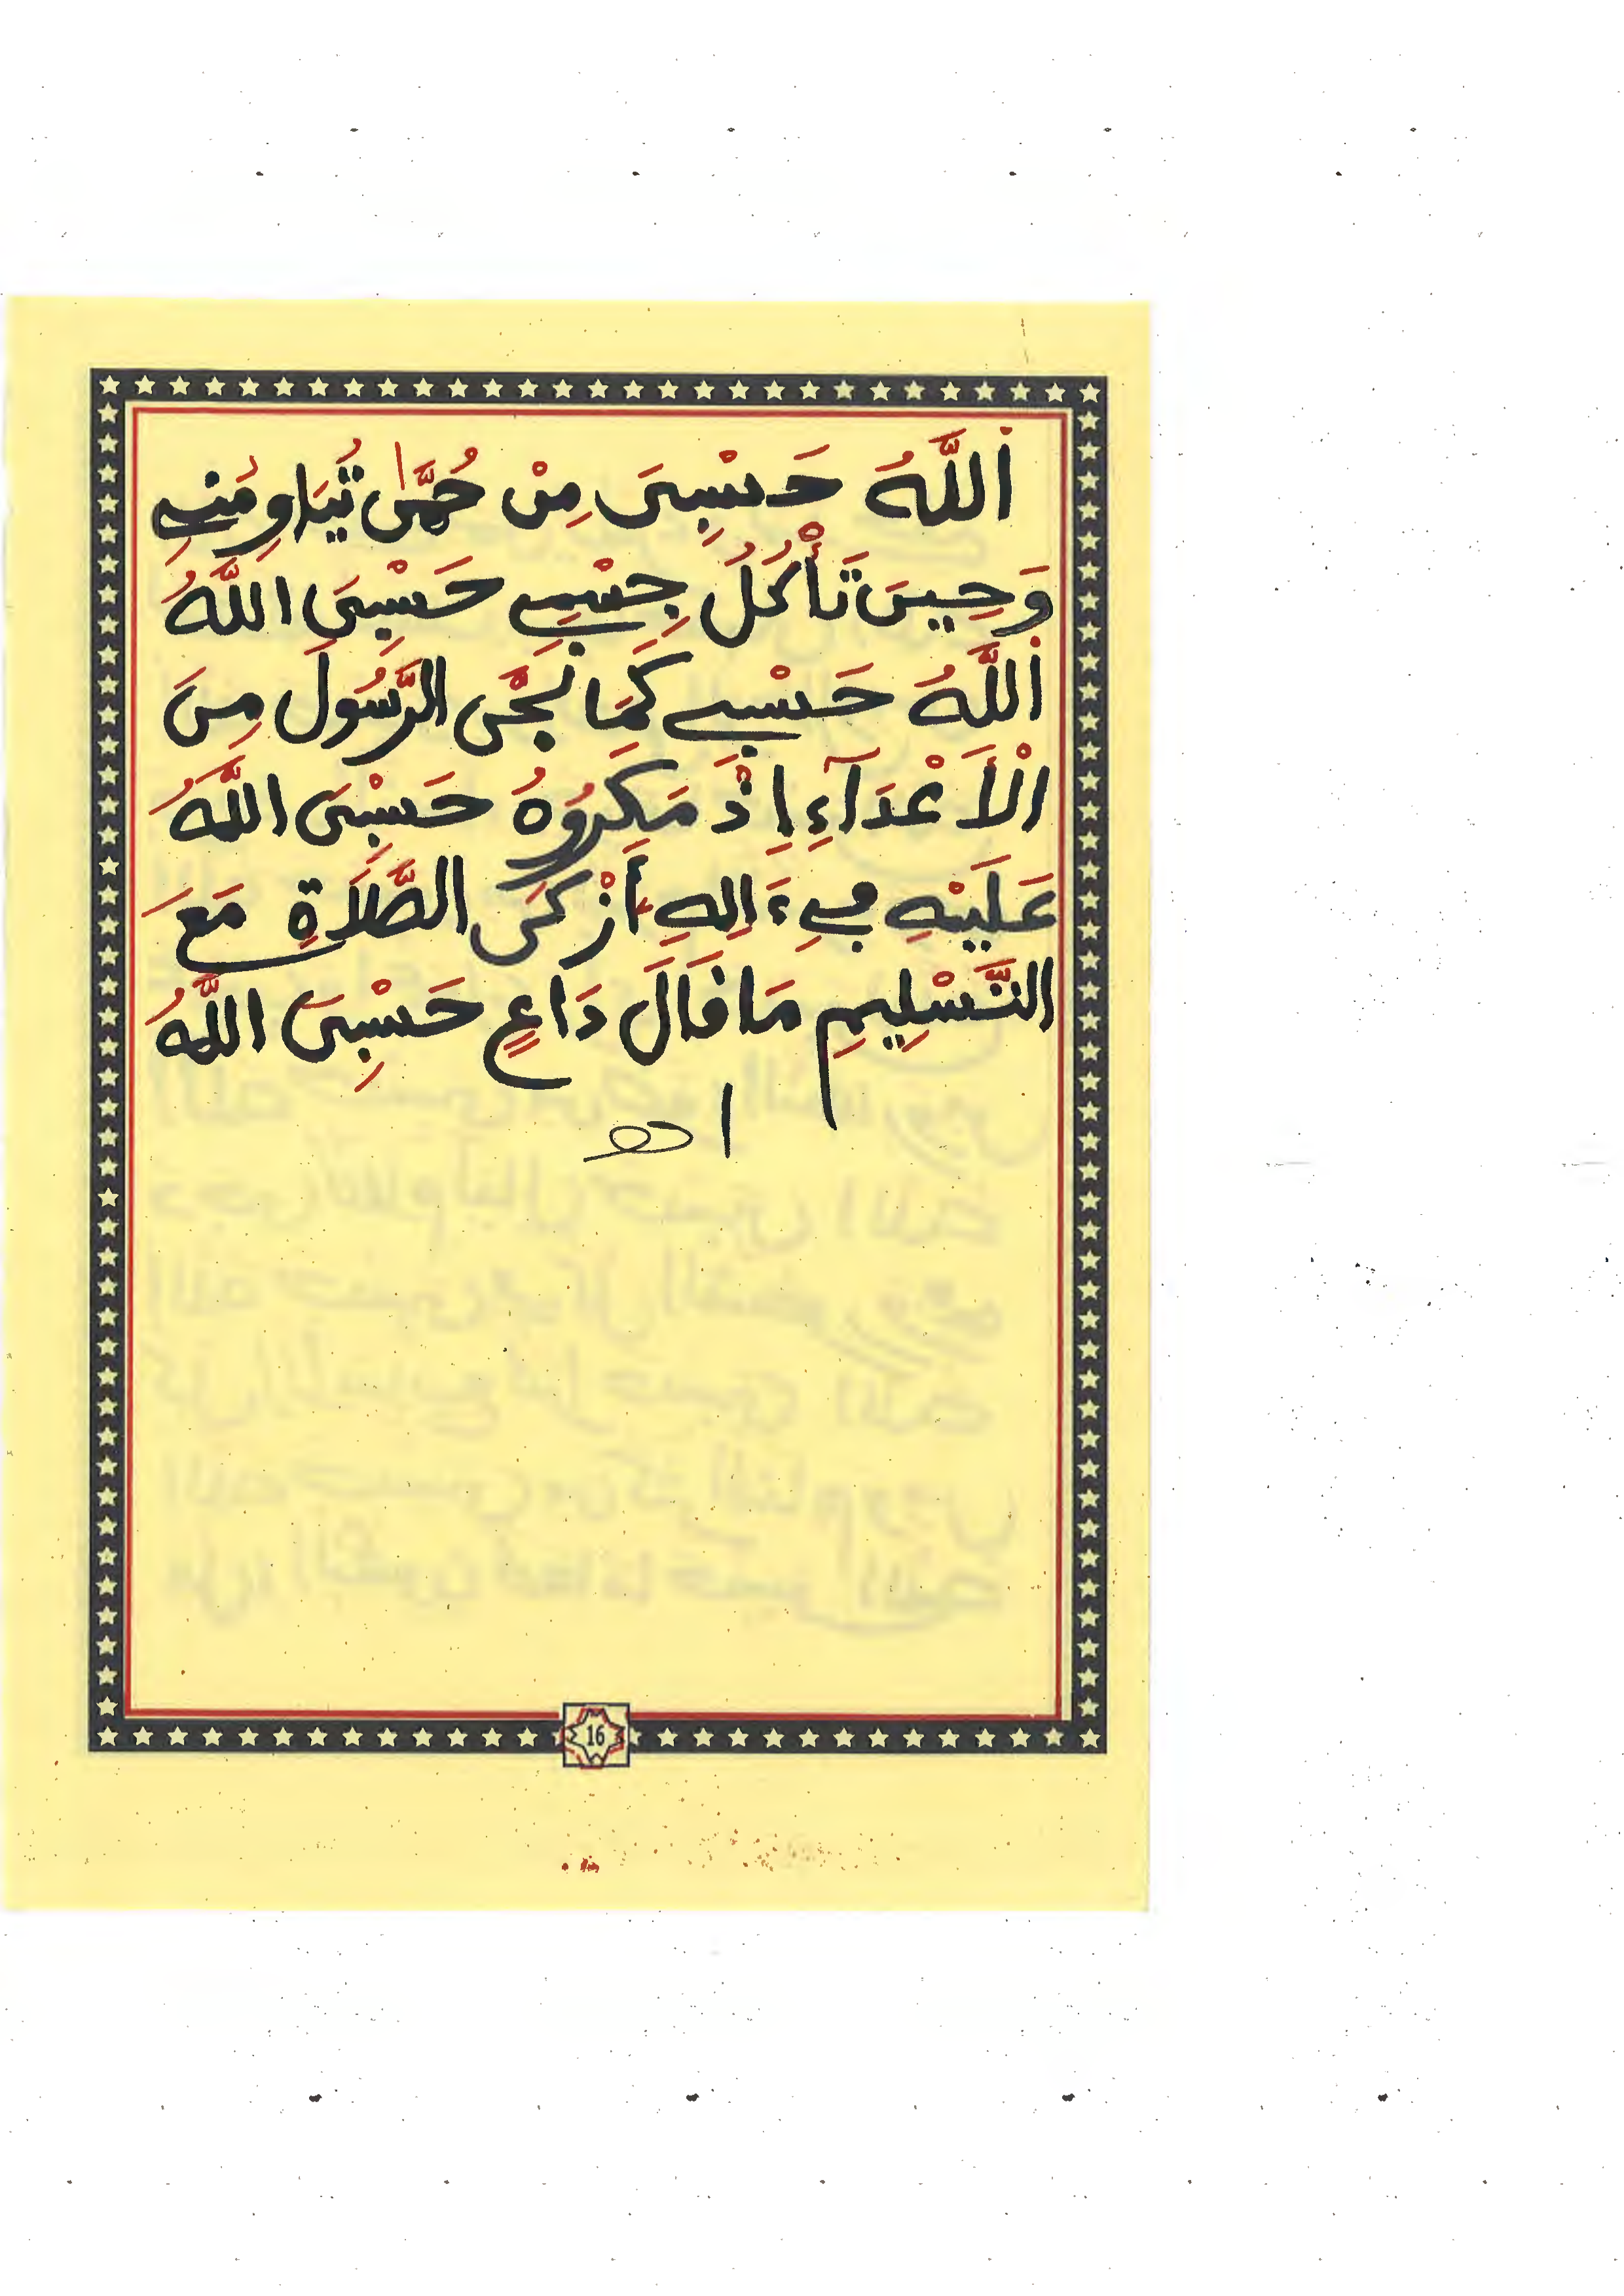 اَللَّهُ حَسْبِىَ مِنْ حُمَّى تُبَاوِمُنِے
وَحِينَ تَأْكُلُ جِسْمِے حَسْبِىَ اللَّهُ
اَللَّهُ حَسْبِے كَمَا نَجَّى الرَّسُولَ مِنَ
الْأَعْدَآءِ إِذْ مَكَرُوهُ حَسْبِىَ اللَّهُ
عَلَيْهِ مِے ءَالِهِ أَزْكَى الصَّلَاةِ مَعَ
التَّسْلِيمِ مَا فَالَ دَاعٍ حَسْبِىَ اللَّهُ
اهـ
16